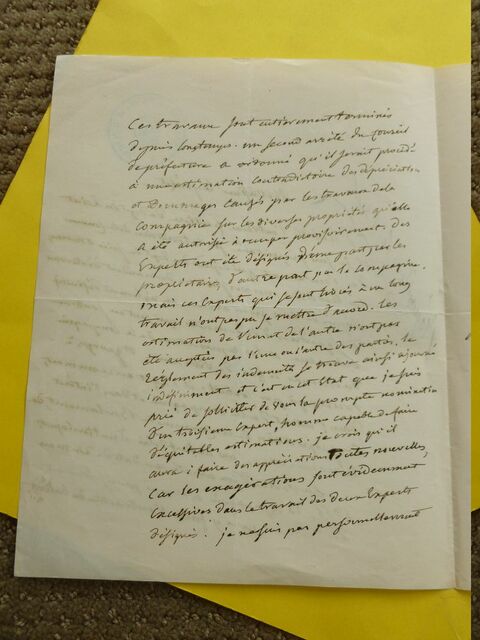 Ces travaux sont entièrement terminés
depuis longtemps. un second arrêté du Conseil
de préfecture a ordonné qu'il serait procédé
à une estimation contradictoire des dépréciations
et Dommages causés par les travaux de la
Compagnie sur les diverses propriétés qu'elle
a été autorisée à occuper provisoirement. Des
Experts ont été désignés d'une part par les
propriétaires, d'autre part par la Compagnie.
mais ces Experts qui se sont livrés à un long
travail n'ont pas pu se mettre d'accord. Les
estimations de l'un et de l'autre n'ont pas
été acceptées par l'une ou l'autre des parties. Le
Règlement des indemnités se trouve ainsi ajourné
indéfiniment et c'est en cet état que je suis
prié de solliciter de vous la prompte nomination
d'un troisième Expert, homme capable de faire
d'équitables estimations. je crois qu'il
aura à faire des appréciations toutes nouvelles,
Car les exagérations sont évidemment
excessives dans le travail des deux Experts
désignés. je ne suis pas personnellement